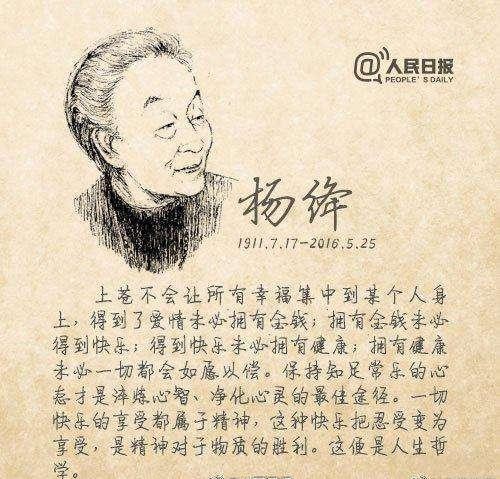 @人民日报
PEOPLE'S DAILY
杨绛
1911.7.17-2016.5.25
上苍不会让所有幸福集中到某个人身
上，得到了爱情未必拥有金钱；拥有金钱未必
得到快乐；得到快乐未必拥有健康；拥有健康
未必一切都会如愿以偿。保持知足常乐的心
态才是淬炼心智、净化心灵的最佳途径。一切
快乐的享受都属于精神，这种快乐把忍受变为
享受，是精神对于物质的胜利。这便是人生哲
学。